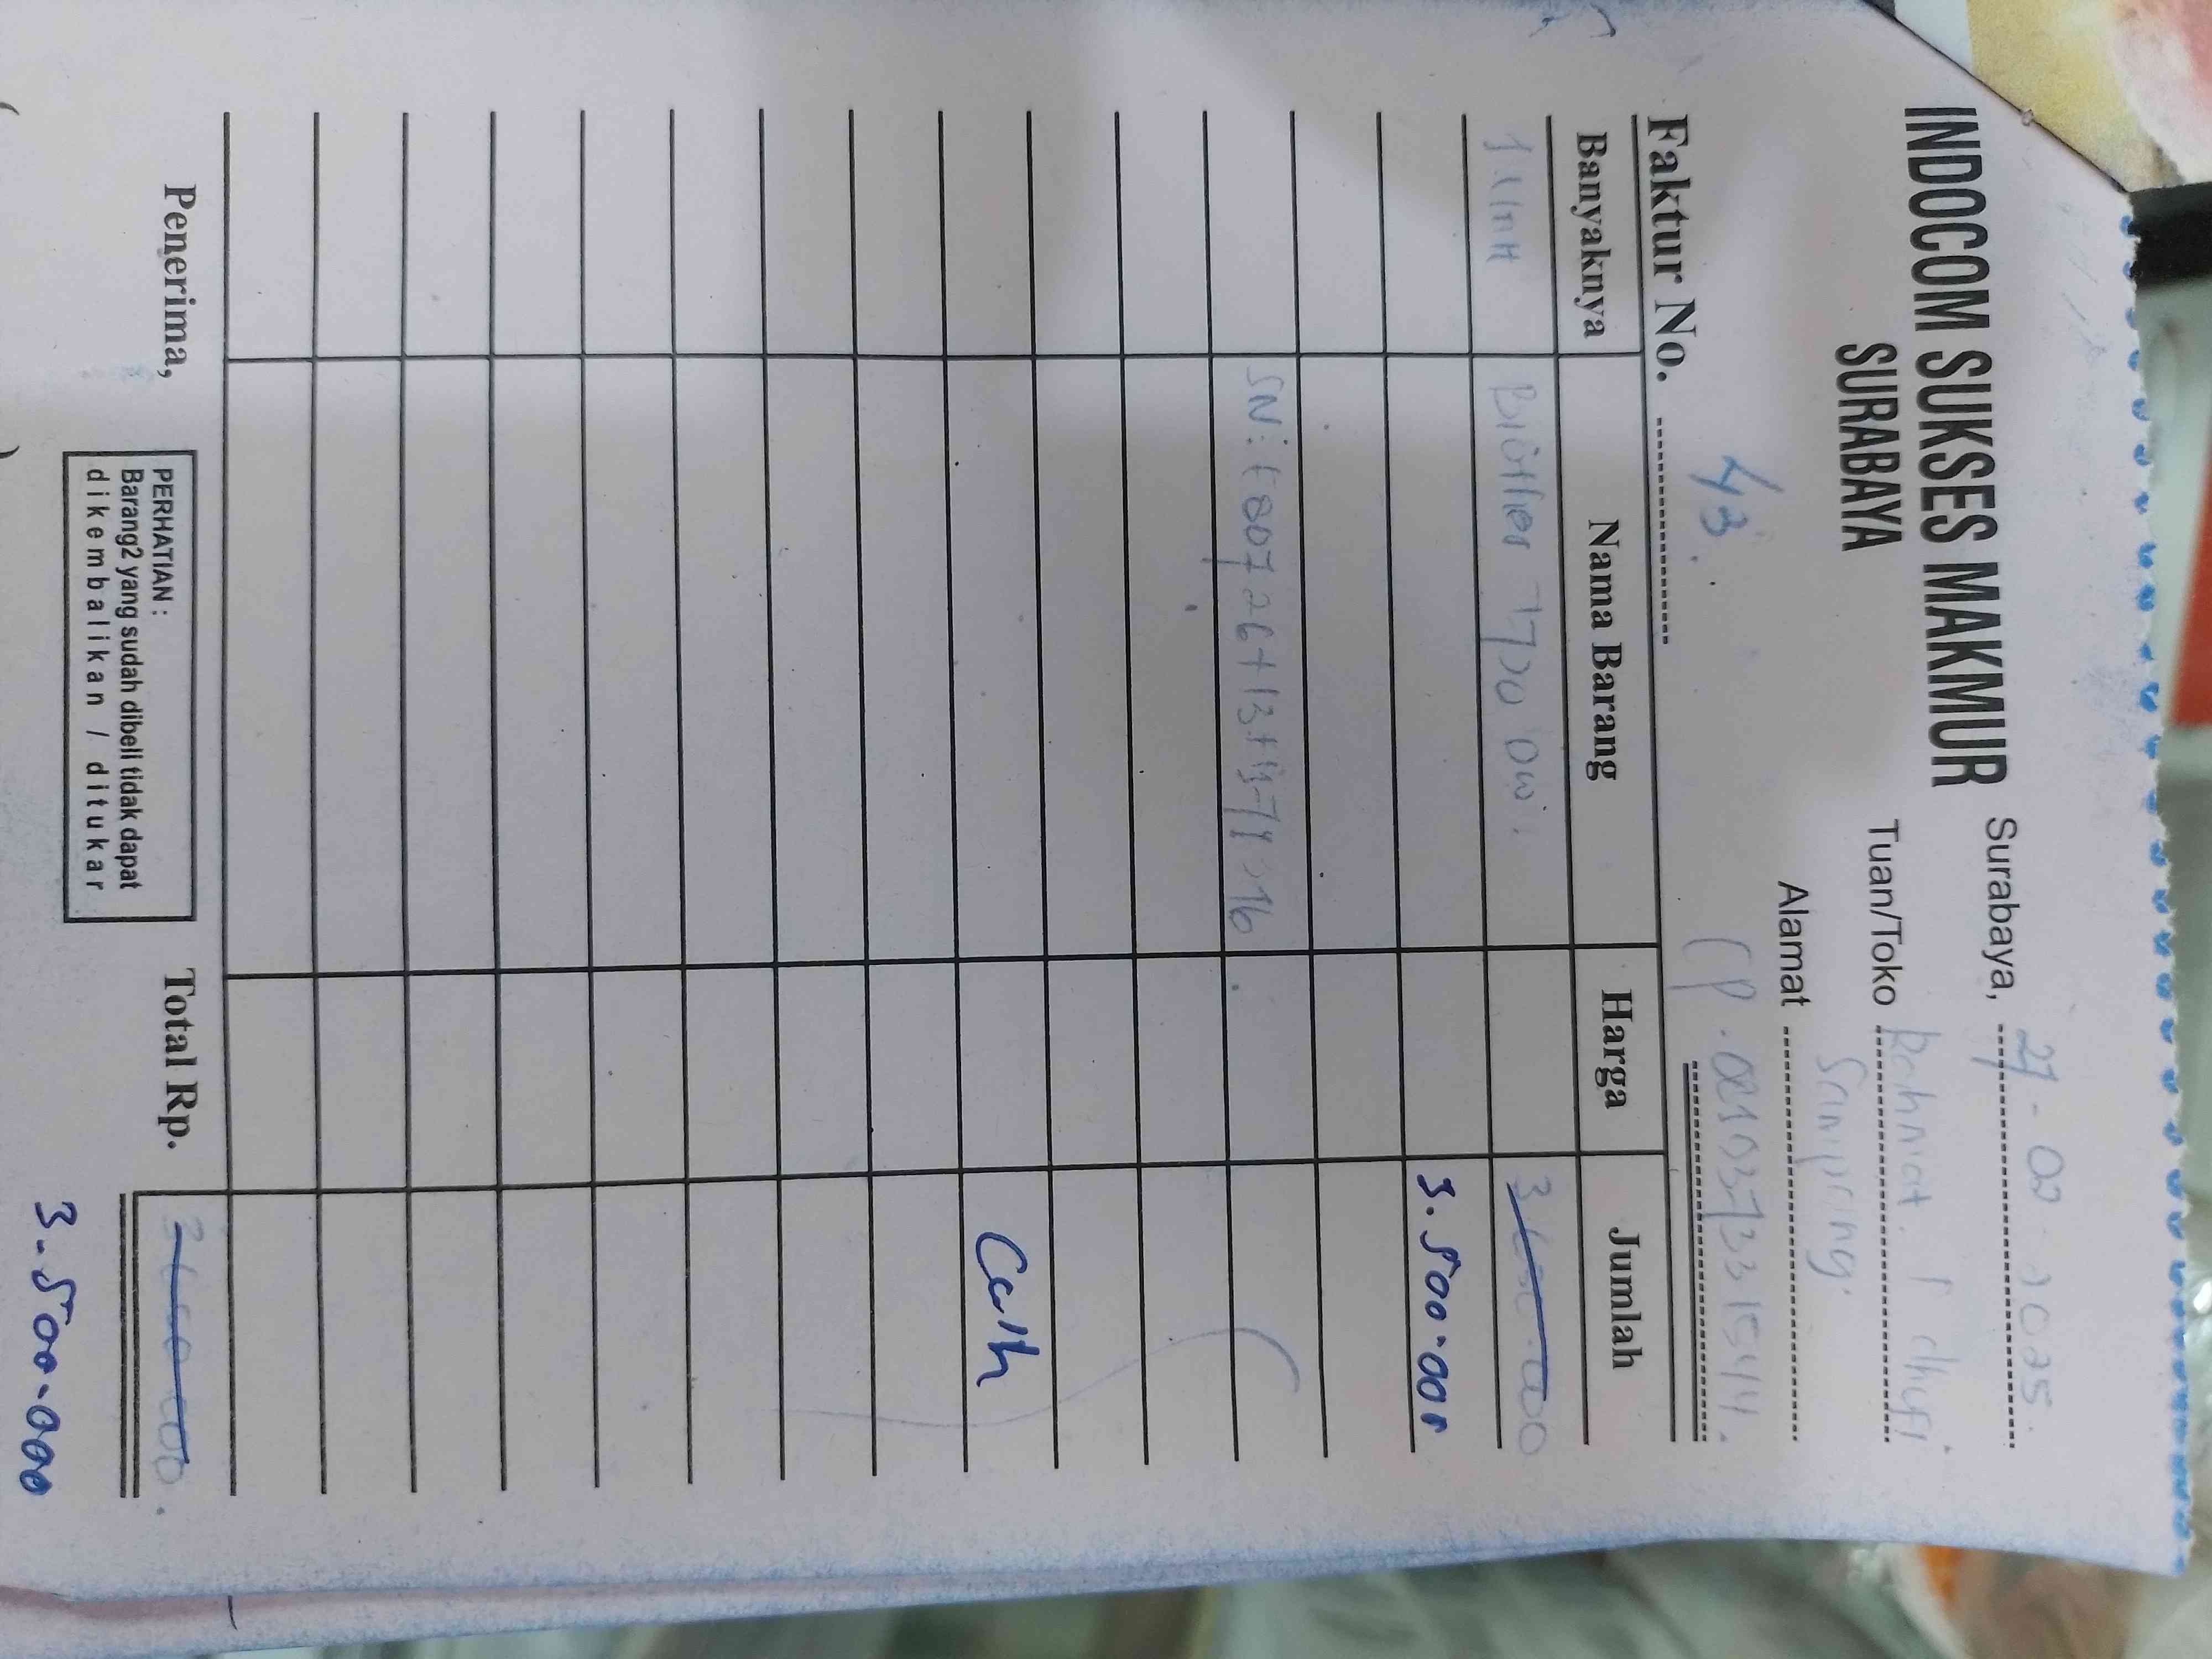 INDOCOM SUKSES MAKMUR
SURABAYA
Surabaya, 27-02-2025.
Tuan/Toko Rahmat.
Sampring.
Alamat
CP.
Faktur No. 43.
Banyaknya Nama Barang Harga Jumlah
1 Unit Brother T720 DW.
3.500.000
SN:
Cash
Penerima,
PERHATIAN :
Barang2 yang sudah dibeli tidak dapat
dikembalikan / ditukar
Total Rp.
3.500.000